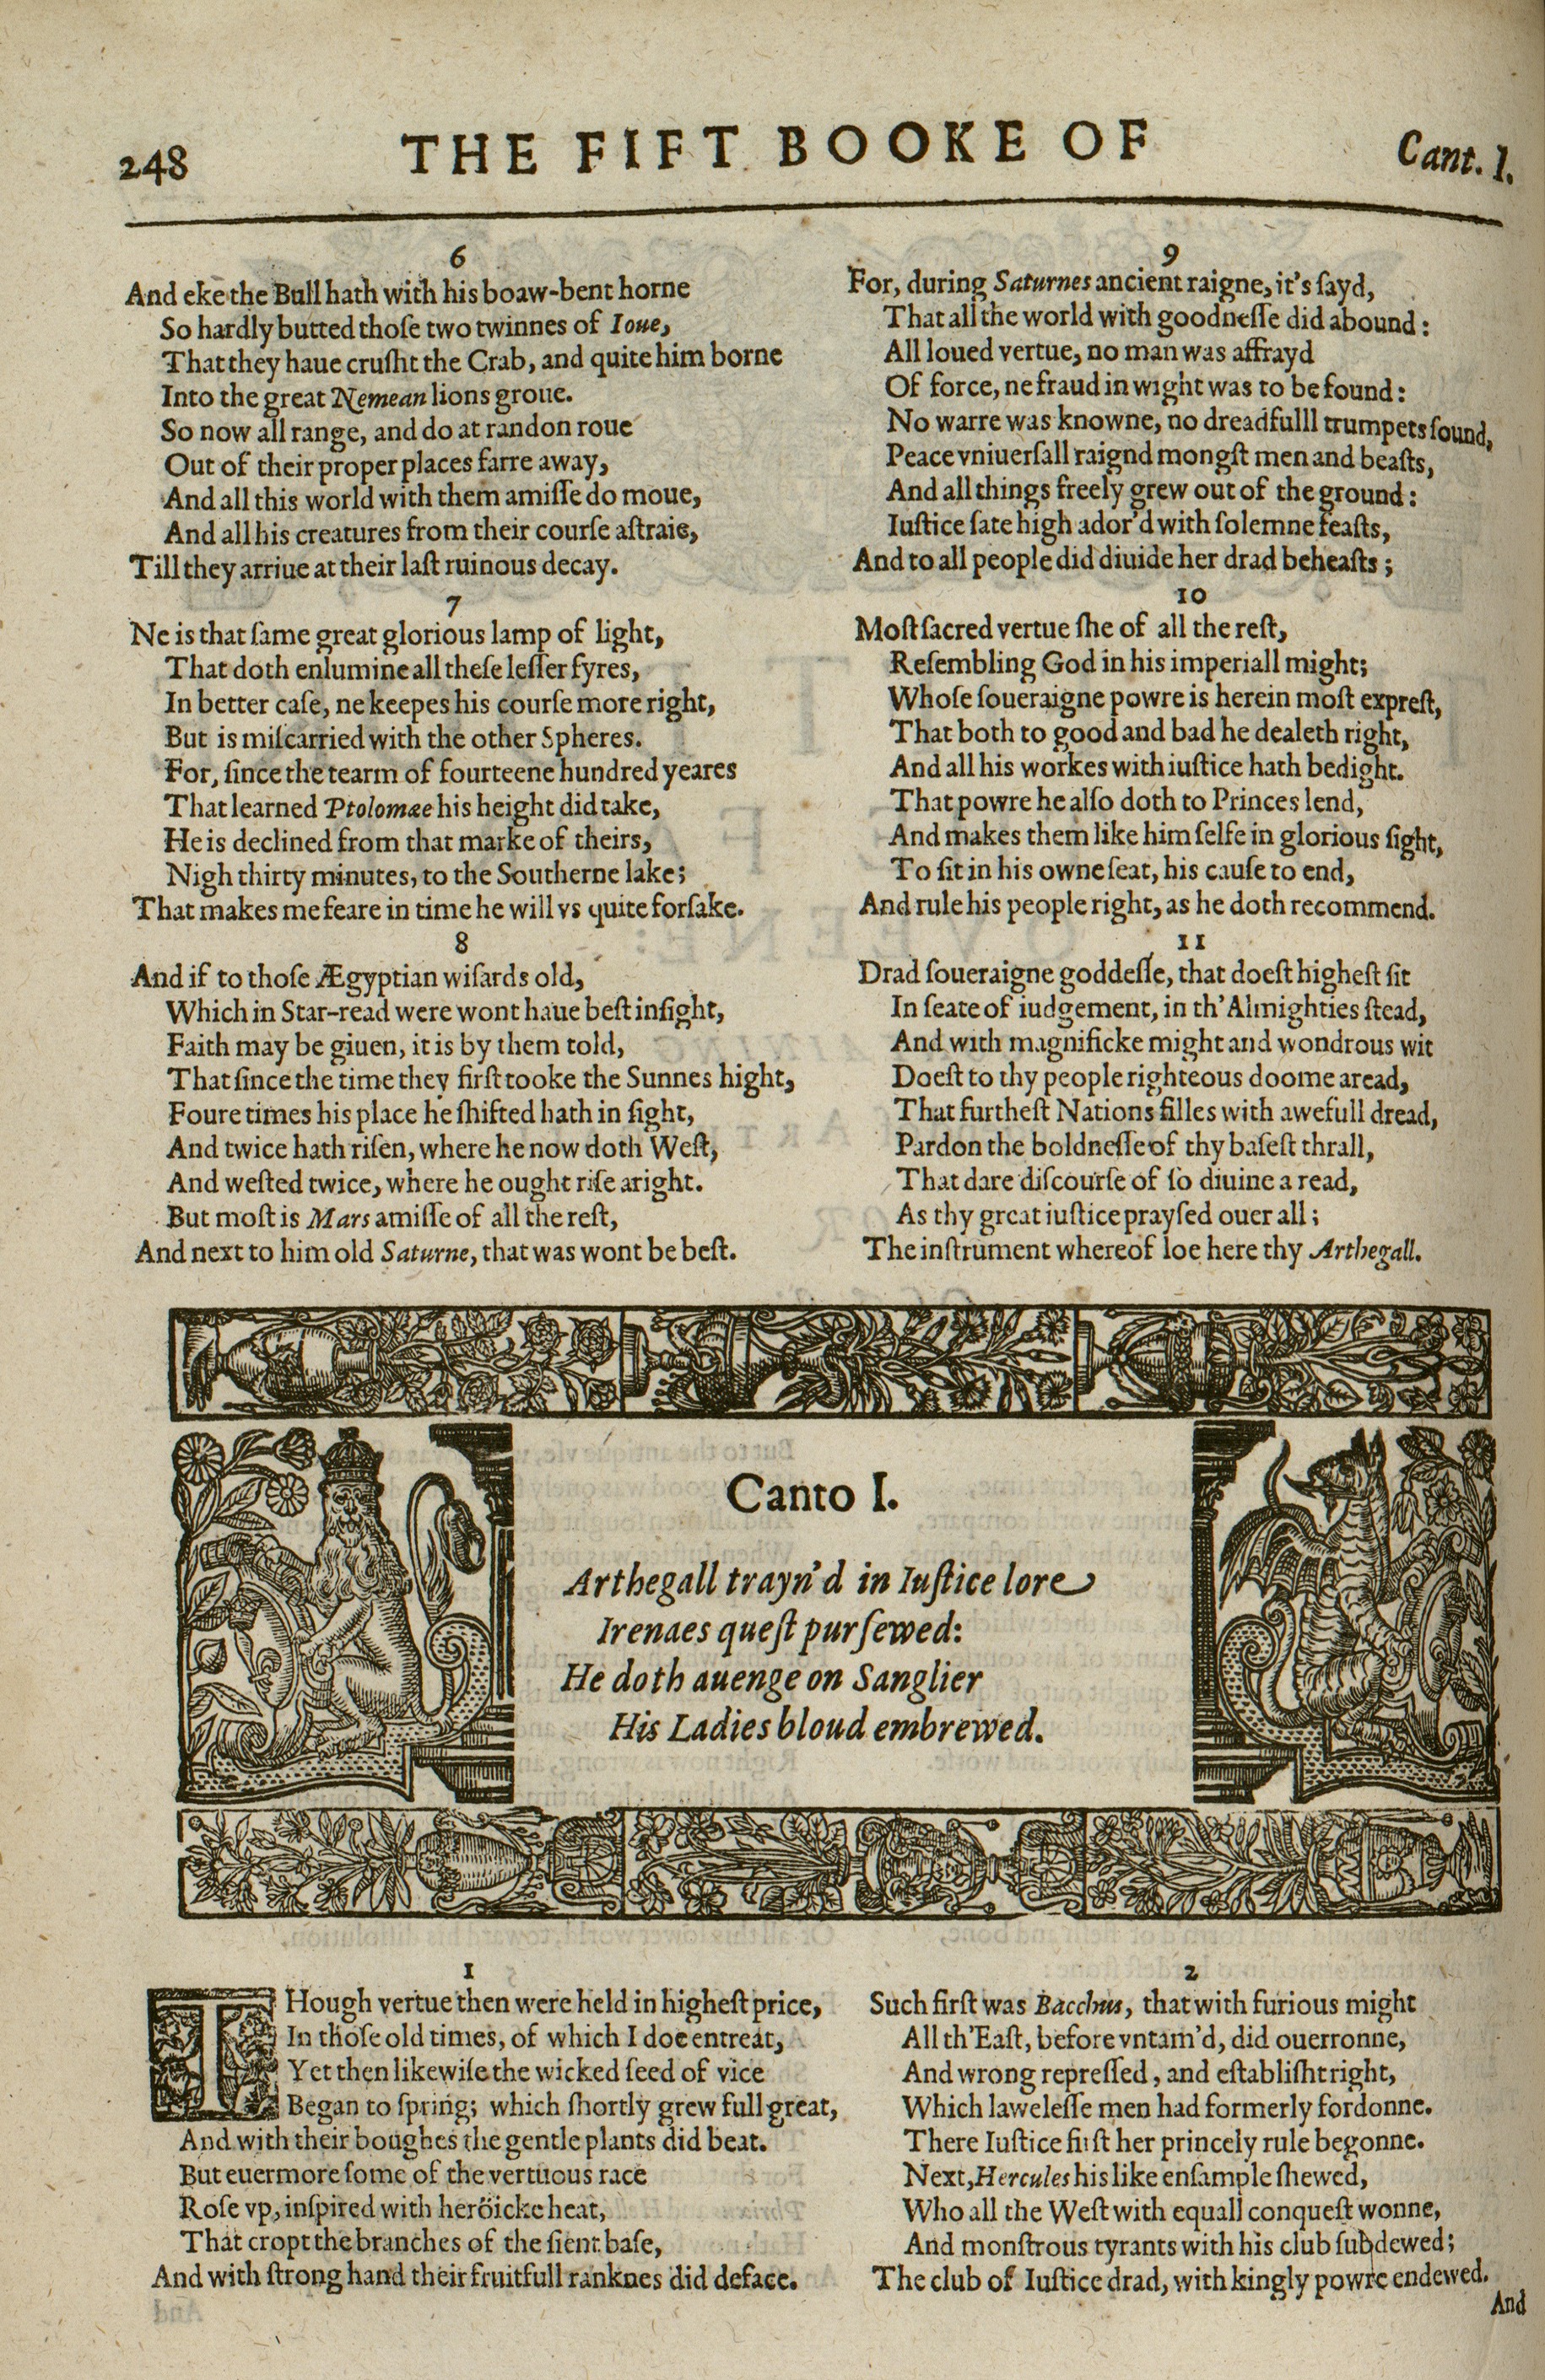 248
THE FIFT BOOKE OF
Cant. I.
6
And eke the Bull hath with his boaw-bent horne
So hardly butted thoſe two twinnes of Ioue,
That they haue cruſht the Crab, and quite him borne
Into the great Nemean lions groue.
So now all range, and do at randon roue
Out of their proper places farre away,
And all this world with them amiſſe do moue,
And all his creatures from their courſe aſtraie,
Till they arriue at their laſt ruinous decay.
7
Ne is that ſame great glorious lamp of light,
That doth enlumine all theſe leſſer fyres,
In better caſe, ne keepes his courſe more right,
But is miſcarried with the other Spheres.
For, ſince the tearm of fourteene hundred yeares
That learned Ptolomæe his height did take,
He is declined from that marke of theirs,
Nigh thirty minutes, to the Southerne lake;
That makes me feare in time he will vs quite forſake.
8
And if to thoſe Ægyptian wiſards old,
Which in Star-read were wont haue beſt inſight,
Faith may be giuen, it is by them told,
That ſince the time they firſt tooke the Sunnes hight,
Foure times his place he ſhifted hath in ſight,
And twice hath riſen, where he now doth Weſt,
And weſted twice, where he ought riſe aright.
But moſt is Mars amiſſe of all the reſt,
And next to him old Saturne, that was wont be beſt.
9
For, during Saturnes ancient raigne, it's ſayd,
That all the world with goodneſſe did abound:
All loued vertue, no man was affrayd
Of force, ne fraud in wight was to be found:
No warre was knowne, no dreadfulll trumpets ſound,
Peace vniuerſall raignd mongſt men and beaſts,
And all things freely grew out of the ground:
Iuſtice ſate high ador'd with ſolemne feaſts,
And to all people did diuide her drad beheaſts;
10
Moſt ſacred vertue ſhe of all the reſt,
Reſembling God in his imperiall might;
Whoſe ſoueraigne powre is herein moſt expreſt,
That both to good and bad he dealeth right,
And all his workes with iuſtice hath bedight.
That powre he alſo doth to Princes lend,
And makes them like him ſelfe in glorious ſight,
To ſit in his owne ſeat, his cauſe to end,
And rule his people right, as he doth recommend.
11
Drad ſoueraigne goddeſſe, that doeſt higheſt ſit
In ſeate of iudgement, in th'Almighties ſtead,
And with magnificke might and wondrous wit
Doeſt to thy people righteous doome aread,
That furtheſt Nations filles with awefull dread,
Pardon the boldneſſe of thy baſeſt thrall,
That dare diſcourſe of ſo diuine a read,
As thy great iuſtice prayſed ouer all;
The inſtrument whereof loe here thy Arthegall.
Canto I.
Arthegall trayn'd in Iuſtice lore
Irenaes queſt purſewed:
He doth auenge on Sanglier
His Ladies bloud embrewed.
1
THough vertue then were held in higheſt price,
In thoſe old times, of which I doe entreat,
Yet then likewiſe the wicked ſeed of vice
Began to ſpring; which ſhortly grew full great,
And with their boughes the gentle plants did beat.
But euermore ſome of the vertuous race
Roſe vp, inſpired with heröicke heat,
That cropt the branches of the ſient baſe,
And with ſtrong hand their fruitfull ranknes did deface.
2
Such firſt was Bacchus, that with furious might
All th'Eaſt, before vntam'd, did ouerronne,
And wrong repreſſed, and eſtabliſht right,
Which laweleſſe men had formerly fordonne.
There Iuſtice firſt her princely rule begonne.
Next, Hercules his like enſample ſhewed,
Who all the Weſt with equall conqueſt wonne,
And monſtrous tyrants with his club ſubdewed;
The club of Iuſtice drad, with kingly powre endewed.
And